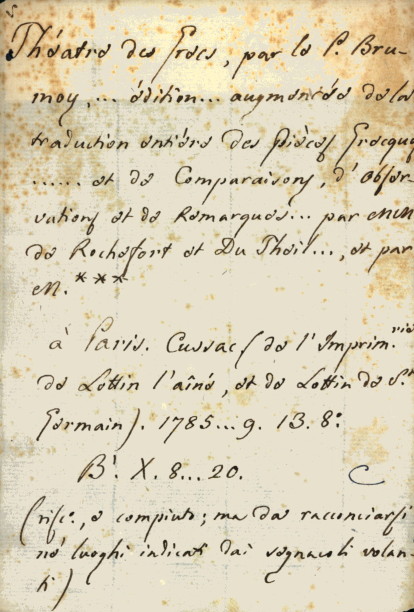 Théatre des Grecs, par le P. Bru-
moy, ... édition ... augmentée de la
traduction entière des pièces Grecques
...... et de Comparaisons, d'Obser-
vations et de Remarques ... par MM
de Rochefort et Du Theil ..., et par
M. ***
à Paris. Cussac (de l'Imprim.rie
de Lottin l'aîné, et de Lottin de St
Germain). 1785 ... 9. 13. 8.°
B. X. 8 ... 20.
(risc.°, e compiuto; ma da racconciarsi
ne' luoghi indicati dai segnacoli volan-
ti)